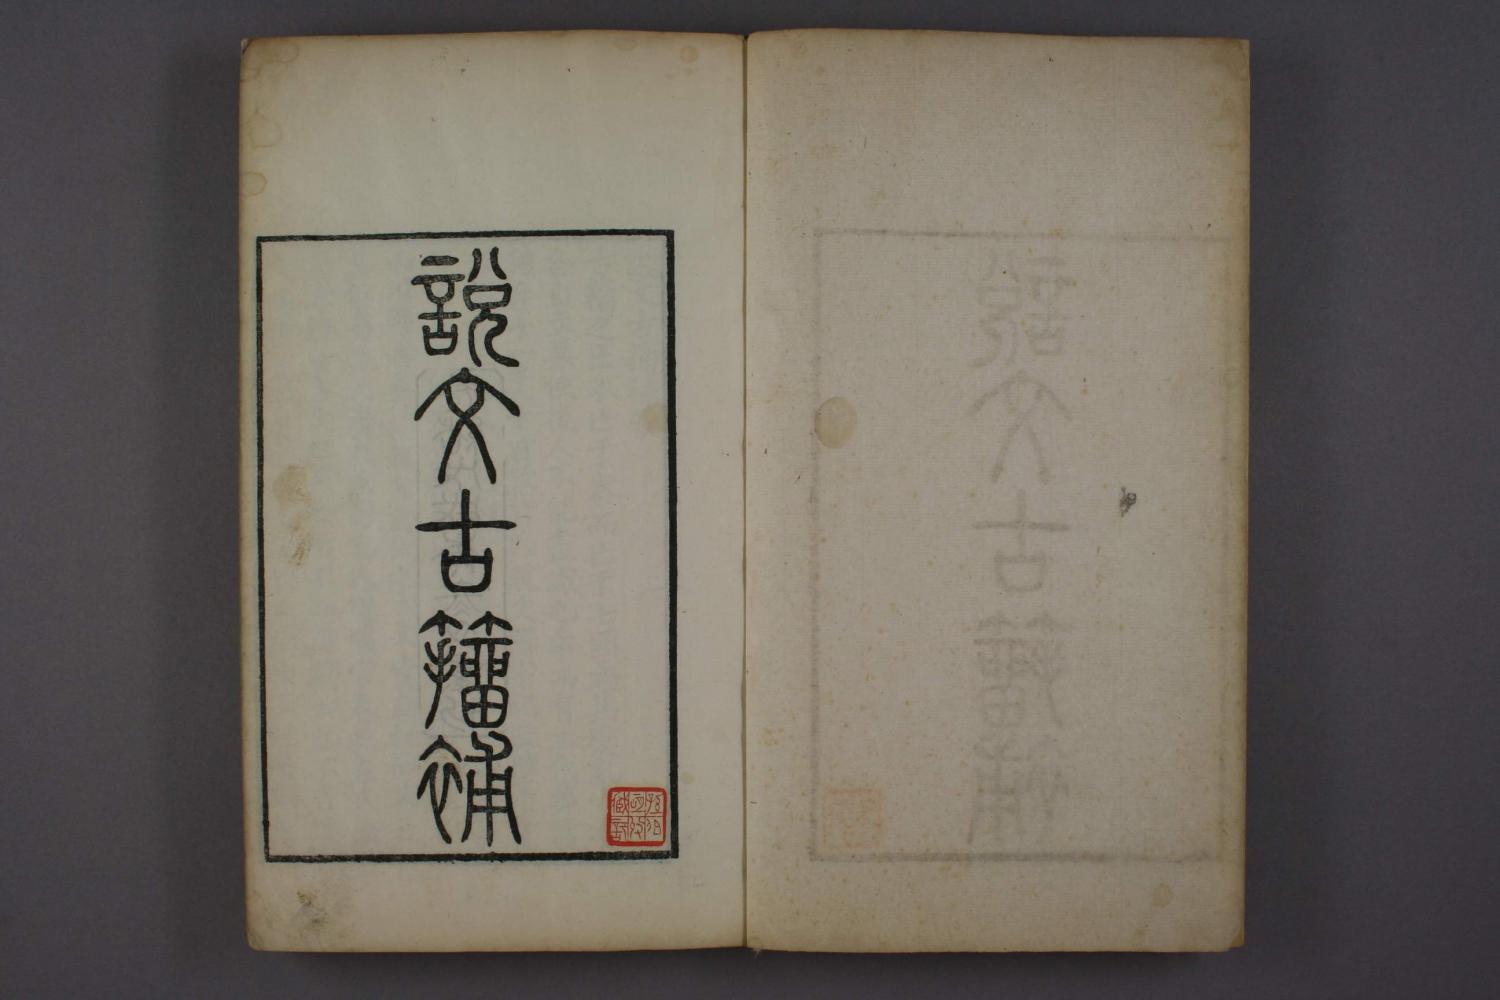 說文古籀補